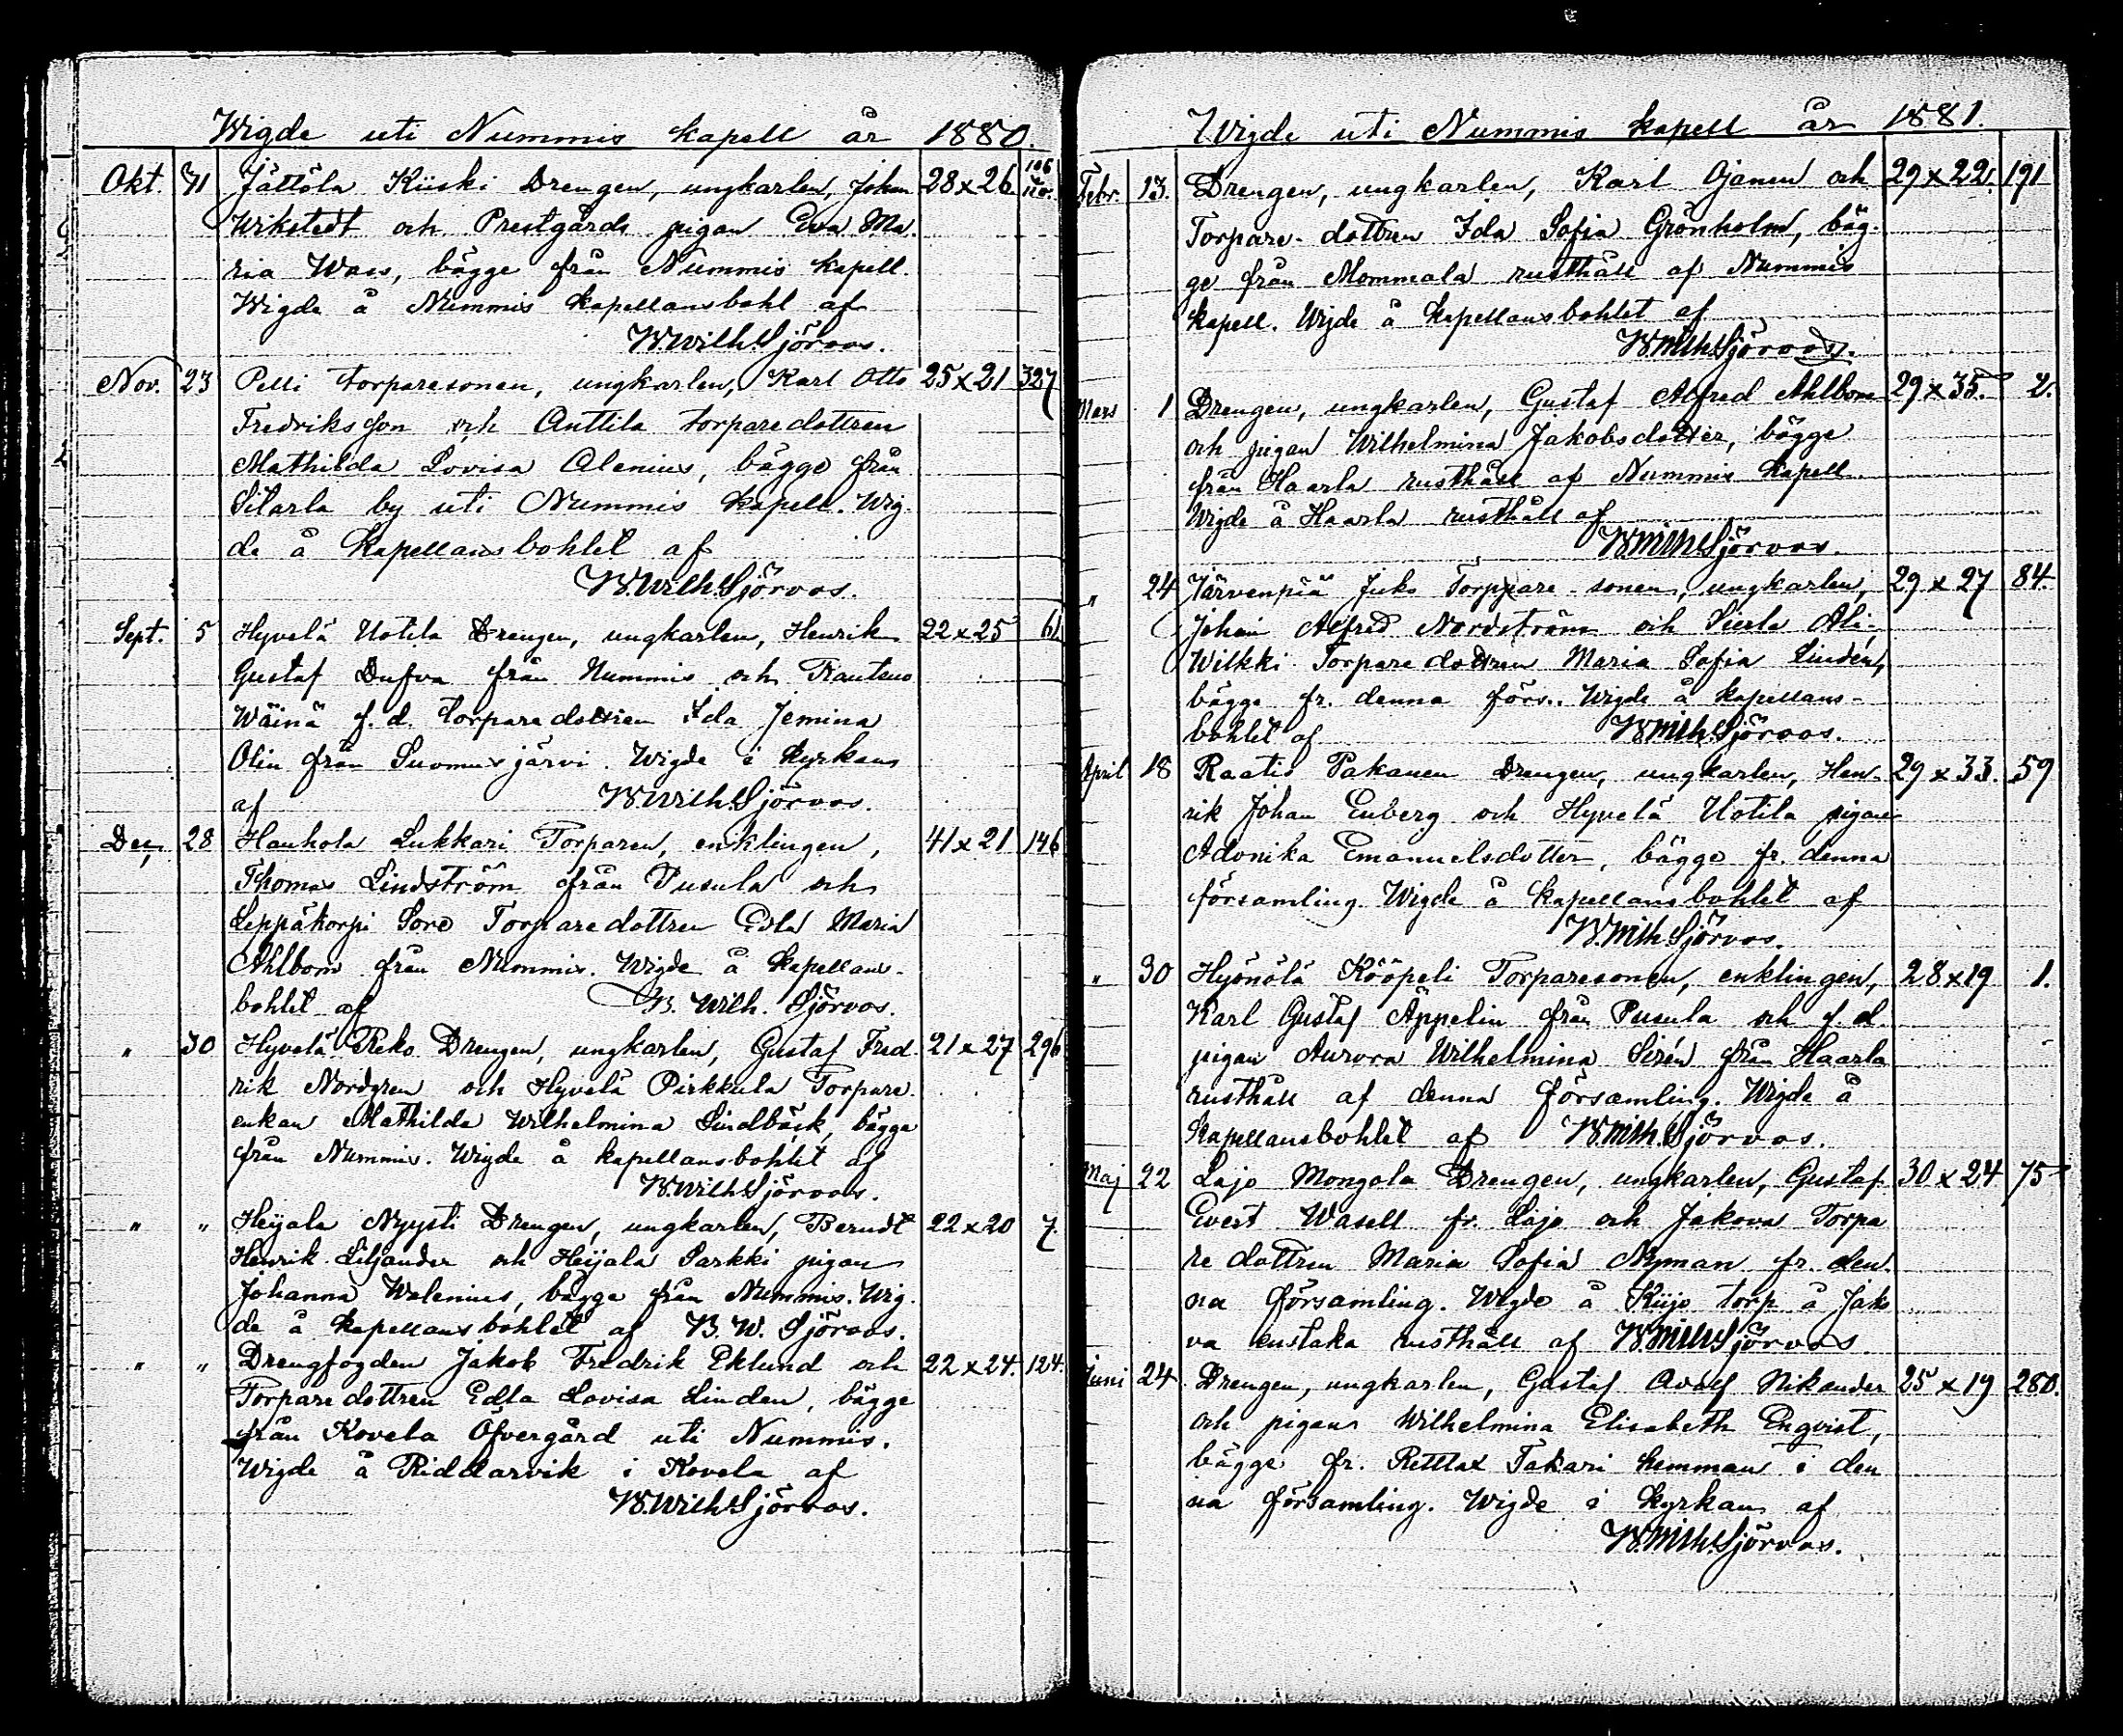 Wigde uti Nummis kapell år 1880.
Okt. 31 Jättölä Kiiski Drengen, ungkarlen, Johan 28 x 26 106
Wikstedt och Prestgårds pigan Eva Ma-
ria Waes, bägge från Nummis kapell.
Wigde å Nummis kapellansbohl af
W. Wilh. Sjöroos.
Nov. 23 Pelli torparesonen, ungkarlen, Karl Otto 25 x 21 327
Fredriksson och Anttila torparedottren
Mathilda Lovisa Alenius, bägge från
Sitarla by uti Nummis kapell. Wig-
de å kapellansbohlet af
W. Wilh. Sjöroos.
Sept. 5 Hyvelä Uotila Drengen, ungkarlen, Henrik 22 x 25 61
Gustaf Dufva från Nummis och
Wäinä f. d. torparedottren Ida Jemina
Olin från Suomusjärvi. Wigde i kyrkan
af W. Wilh. Sjöroos.
Dec. 28 Hanhola Lukkari Torparen, enklingen, 41 x 21 146
Thomas Lindström från Pusula och
Leppäkorpi Soro Torparedottren Edla Maria
Ahlbom från Nummis. Wigde å kapellans-
bohlet af W. Wilh. Sjöroos.
" 30 Hyvelä Reko Drengen, ungkarlen, Gustaf Fred- 21 x 27 296
rik Nordgren och Hyvelä Pirkkula Torpare-
enkan Mathilda Wilhelmina Lindbäck, bägge
från Nummis. Wigde å kapellansbohlet af
W. Wilh. Sjöroos.
" " Heijala Nyysti Drengen, ungkarlen, Berndt 22 x 20 7.
Henrik Liljander och Heijala Sarkki pigan
Johanna Walenius, bägge från Nummis. Wig-
de å kapellansbohlet af W. W. Sjöroos.
" " Drengfogden Jakob Fredrik Eklund och 22 x 24. 124.
Torparedottren Edla Lovisa Linden, bägge
från Kovela Öfvergård uti Nummis.
Wigde å Riddarvik i Kovela af
W. Wilh. Sjöroos.
Wigde uti Nummis kapell år 1881.
Febr. 13. Drengen, ungkarlen, Karl Ojanen och 29 x 22. 191
Torpare-dottren Ida Sofia Grönholm, bäg-
ge från Mommola rusthåll af Nummis
kapell. Wigde å kapellansbohlet af
W. Wilh. Sjöroos.
Mars 1 Drengen, ungkarlen, Gustaf Alfred Ahlbom 29 x 35. 2.
och pigan Wilhelmina Jakobsdotter, bägge
från Haarla rusthåll af Nummis kapell.
Wigde å Haarla rusthåll af
W. Wilh. Sjöroos.
" 24 Järvenpää Juko Torpare-sonen, ungkarlen, 29 x 27 84.
Johan Alfred Nordström och Sierla Ali-
Wilkki Torparedottren Maria Sofia Lindén,
bägge fr. denna förs.. Wigde å kapellans-
bohlet af W. Wilh. Sjöroos.
April 18 Raatis Pakanen Drengen, ungkarlen, Hen- 29 x 33. 59
rik Johan Enberg och Hyvelä Uotila pigan
Adonika Emanuelsdotter, bägge fr. denna
församling. Wigde å kapellansbohlet af
W. Wilh. Sjöroos.
" 30 Hyönölä Kööpeli Torparesonen, enklingen, 28 x 19 1.
Karl Gustaf Äppelin från Pusula och f. d.
pigan Aurora Wilhelmina Sirén från Haarla
rusthåll af denna församling. Wigde å
Kapellansbohlet af W. Wilh. Sjöroos.
Maj 22 Lojo Mongola Drengen, ungkarlen, Gustaf 30 x 24 75
Evert Wasell fr. Lojo och Jakova Torpa-
re dottren Maria Sofia Nyman fr. den-
na församling. Wigde å torp å Jako
va enstaka rusthåll af W. Wilh. Sjöroos.
Juni 24 Drengen, ungkarlen, Gustaf Adolf Nikander 25 x 19 280.
och pigan Wilhelmina Elisabeth Enqvist,
bägge fr. Takari hemman i den
na församling. Wigde i kyrkan af
W. Wilh. Sjöroos.